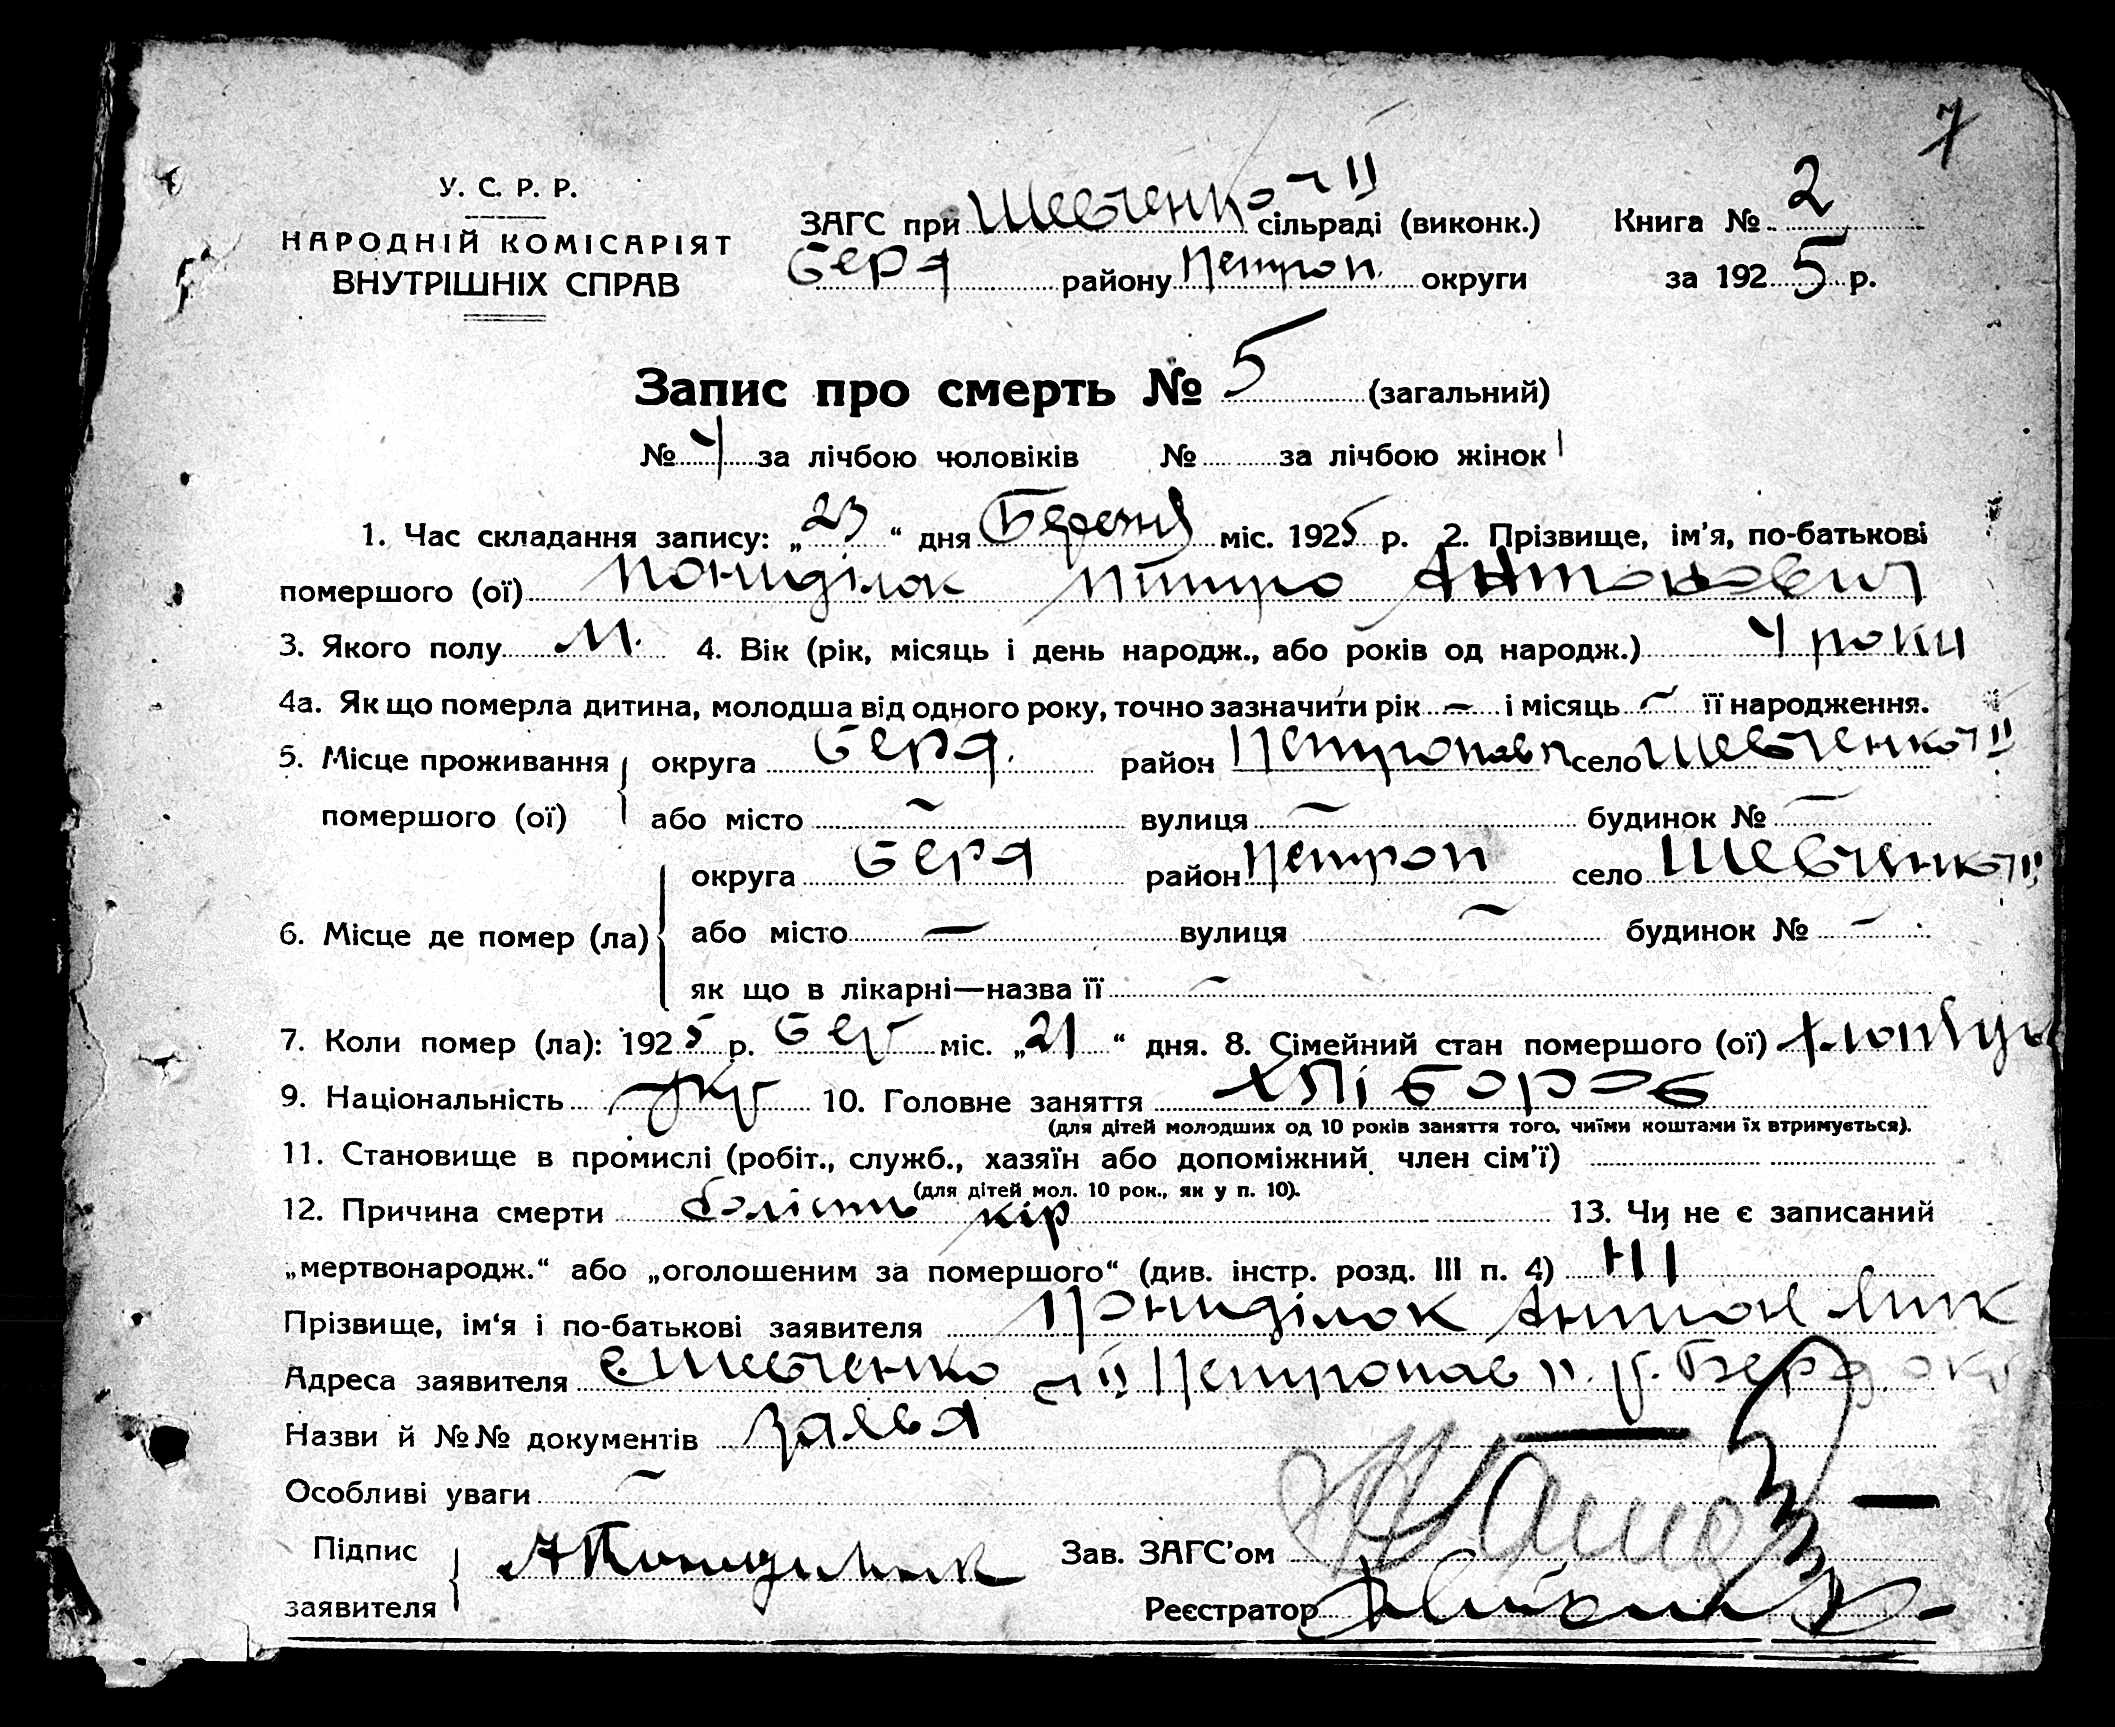 7
У. С. Р. Р.
НАРОДНІЙ КОМІСАРІЯТ
ВНУТРІШНІХ СПРАВ
ЗАГС при Шевченко - II сільраді (виконк.) Книга № 2
Берд району Петроп. округи за 1925 р.
Запис про смерть № 5 (загальний)
№ 4 за лічбою чоловіків № за лічбою жінок
1. Час складання запису: „23“ дня Березня міс. 1925 р. 2. Прізвище, ім'я, по-батькові
помершого (ої) Пониділок Питро Антонович
3. Якого полу М. 4. Вік (рік, місяць і день народж., або років од народж.) 4 роки
4а. Як що померла дитина, молодша від одного року, точно зазначити рік — і місяць — її народження.
5. Місце проживання помершого (ої) округа Берд. район Петропавл село Шевченко II
або місто — вулиця — будинок № —
6. Місце де помер (ла) округа Берд район Петроп село Шевченко II
або місто — вулиця — будинок № —
як що в лікарні—назва її —
7. Коли помер (ла): 1925 р. Бер міс. „21“ дня. 8. Сімейний стан помершого (ої) хлопець
9. Національність Укр 10. Головне заняття хліборов
(для дітей молодших од 10 років заняття того, чиїми коштами їх втримується).
11. Становище в промислі (робіт., служб., хазяїн або допоміжний член сім'ї)
(для дітей мол. 10 рок., як у п. 10).
12. Причина смерти болість кір 13. Чи не є записаний
„мертвонародж.“ або „оголошеним за помершого“ (див. інстр. розд. III п. 4) НІ
Прізвище, ім'я і по-батькові заявителя Пониділок Антон
Адреса заявителя с Шевченко II Петропав р. Берд окр
Назви й №№ документів заява
Особливі уваги —
Підпис заявителя А Понидилок Зав. ЗАГС'ом
Реєстратор